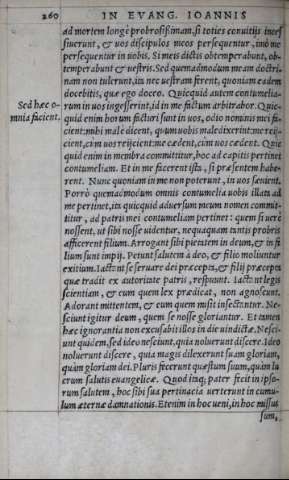 260 IN EVANG. IOANNIS
ad mortem longè probrosissimam, si toties conuitijs incessiuerunt
fiuerunt, & uos discipulos meos persequentur, imò me
persequentur in uobis. Si meis dictis obtemperabunt, ob-
temperabunt & uestris. Sed quemadmodum meam doctri-
nam non tulerunt, ita nec uestram ferent, quoniam eadem
docebitis, quæ ego doceo. Quicquid autem contumelia-
Sed hæc o-
mnia facient.
rum in uos ingesserint, id in me factum arbitrabor. Quic-
quid enim horum facturi sunt in uos, odio nominis mei fa-
cient: mihi malè dicent, quum uobis maledixerint: me reij-
cient, cùm uos reijcient: me cædent, cùm uos cædent. Quic
quid enim in membra committitur, hoc ad capitis pertinet
contumeliam. Et in me facerent ista, si præsentem habe-
rent. Nunc quoniam in me non poterunt, in uos sæuient.
Porrò quemadmodum omnis contumelia uobis illata ad
me pertinet, ita quicquid aduersum meum nomen commit-
titur, ad patris mei contumeliam pertinet: quem si uerè
nossent, ut sibi nosse uidentur, nequaquam tantis probris
afficerent filium. Arrogant sibi pietatem in deum, & in fi
lium sunt impij. Petunt salutem à deo, & filio moliuntur
exitium. Iactant se seruare dei præcepta, & filij præcepta
quæ tradit ex autoritate patris, respuunt. Iactant legis
scientiam, & eum quem lex prædicat, non agnoscunt.
Adorant mittentem, & eum quem misit insectantur. Ne-
sciunt igitur deum, quem se nosse gloriantur. Et tamen
hæc ignorantia non excusabit illos in die uindictæ. Nesci-
unt quidem, sed ideo nesciunt, quia noluerunt discere. Ideo
noluerunt discere, quia magis dilexerunt suam gloriam,
quàm gloriam dei. Pluris fecerunt quæstum suum, quàm lu
crum salutis euangelicæ. Quod inq; pater fecit in ipso-
rum salutem, hoc sibi sua pertinacia uerterunt in cumu-
lum æternæ damnationis. Etenim in hoc ueni, in hoc missus
sum,